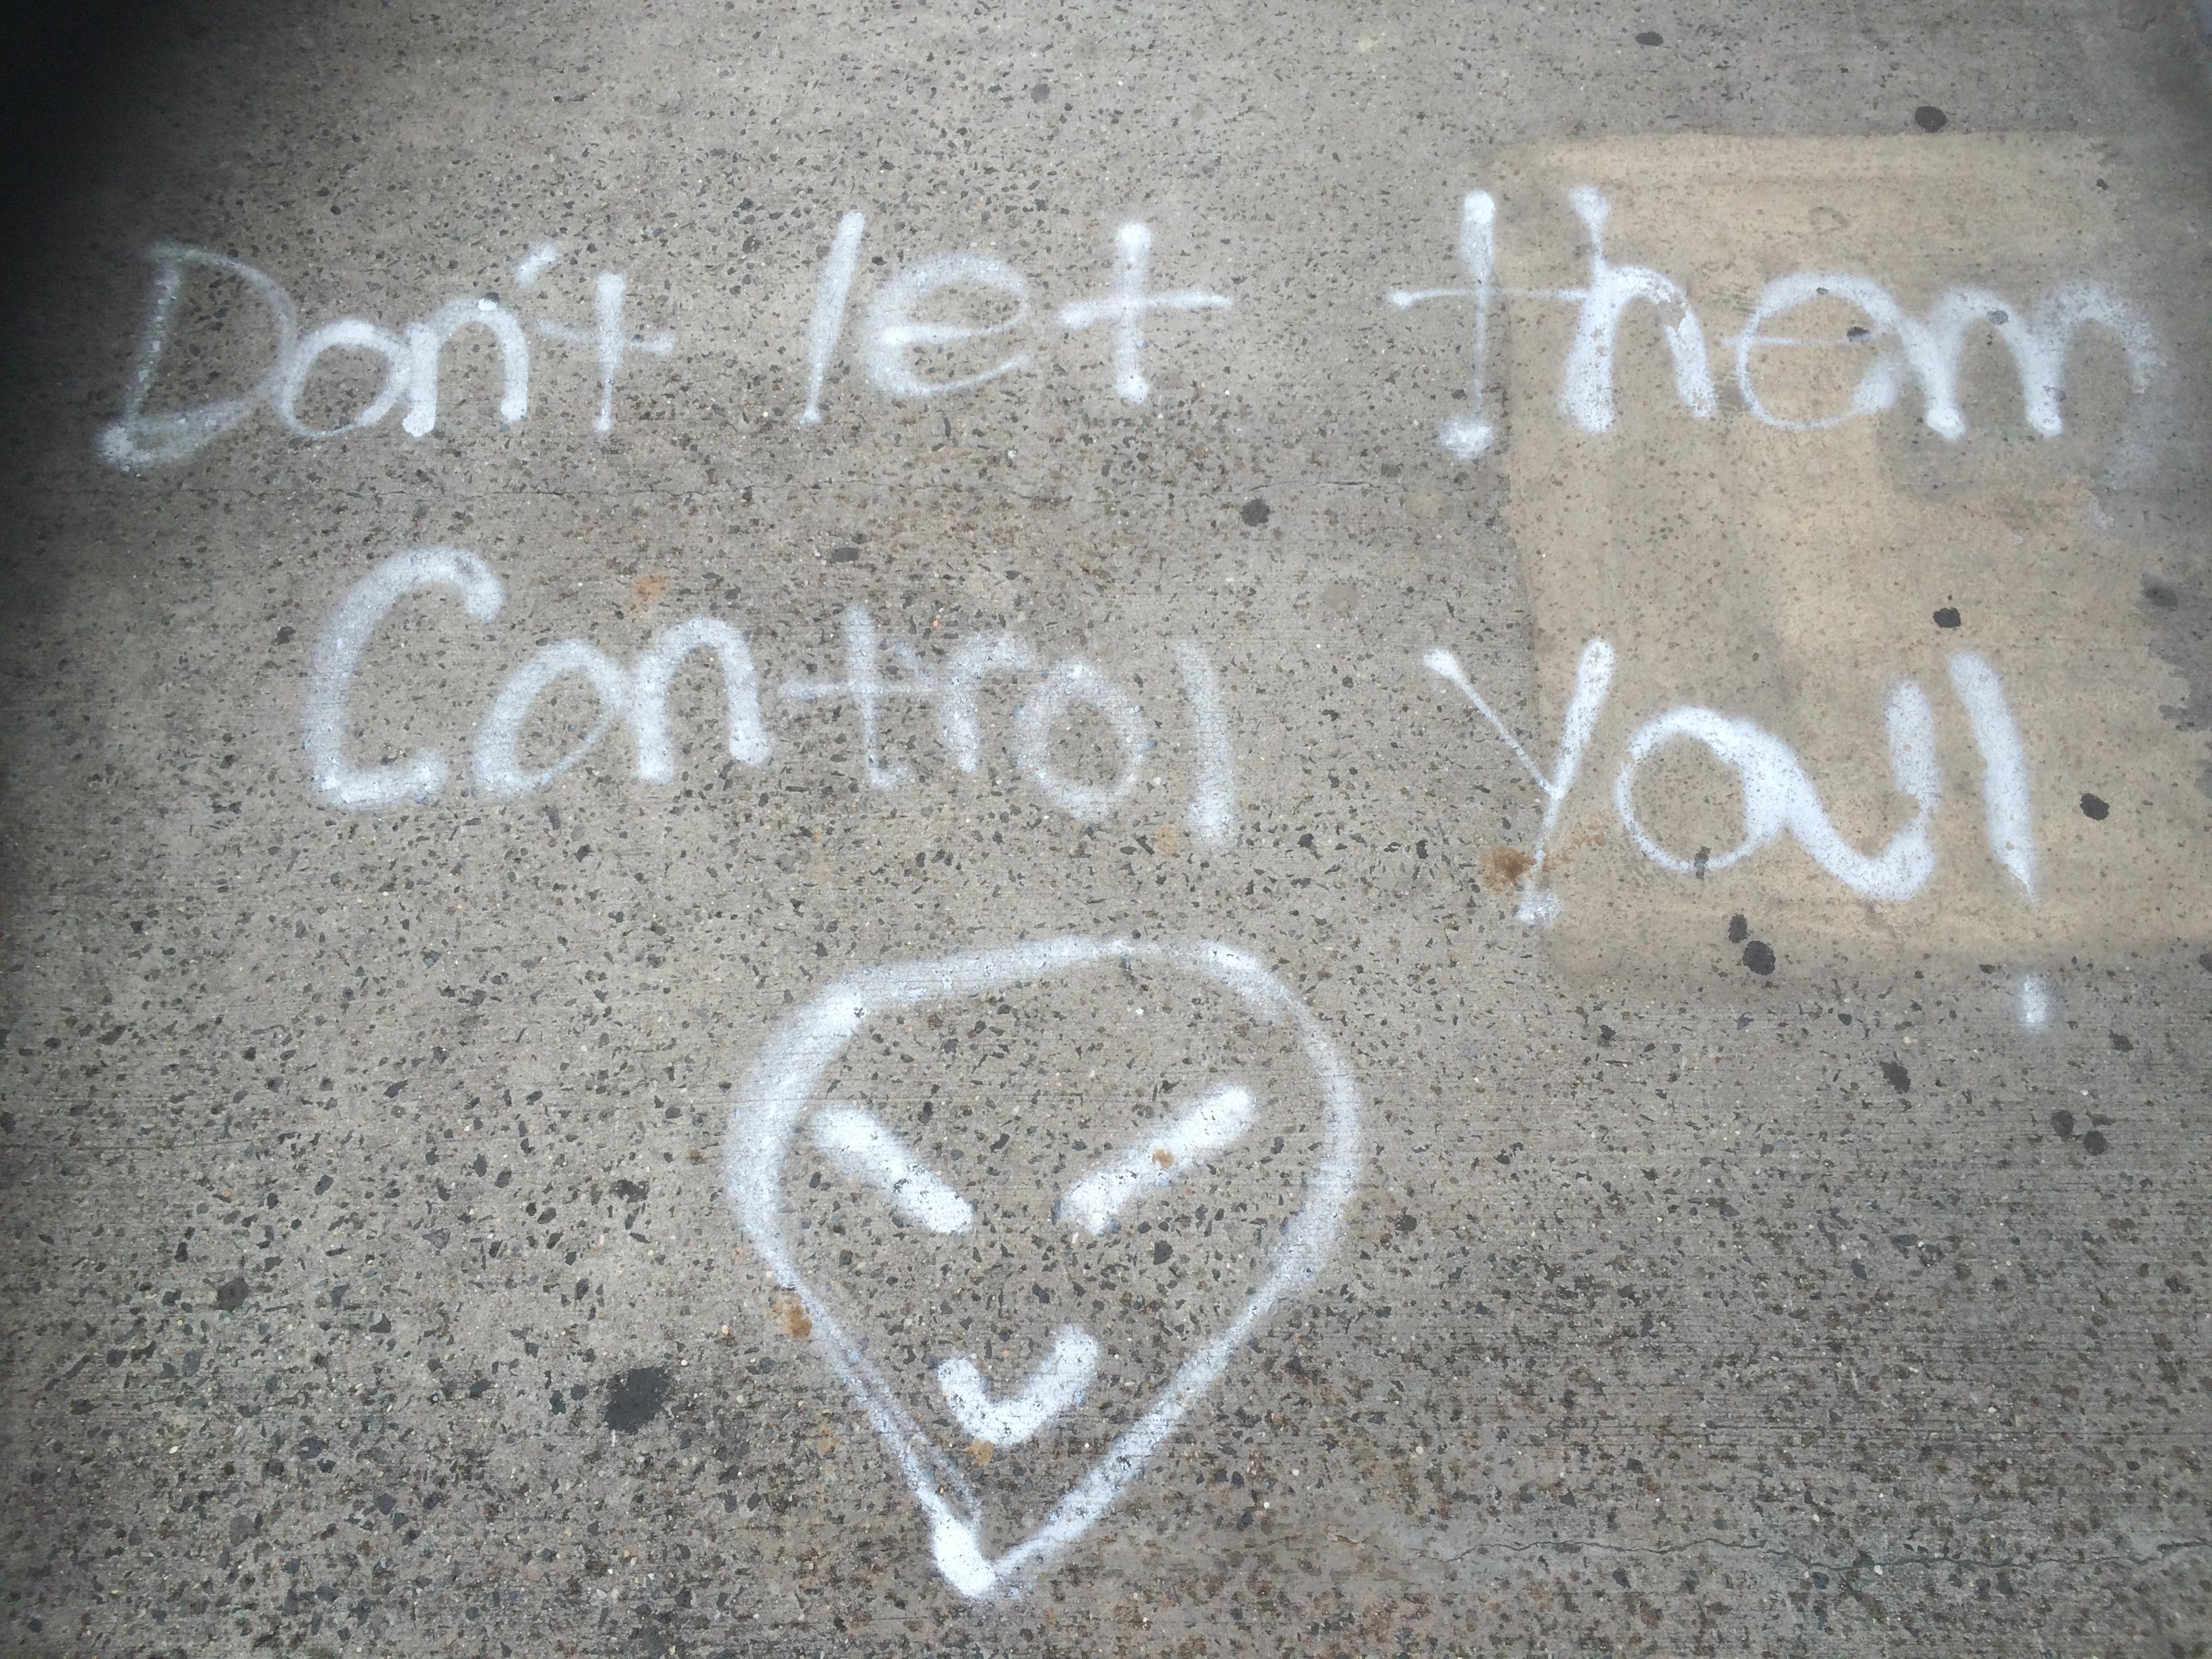 Don't let them
Control you!